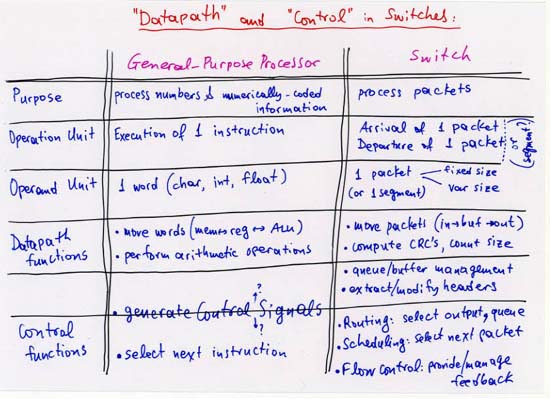 "Datapath" and "Control" in Switches:
General-Purpose Processor
Switch
Purpose
process numbers & numerically-coded
information
process packets
Operation Unit
Execution of 1 instruction
Arrival of 1 packet
Departure of 1 packet
or
(segment?)
Operand Unit
1 word (char, int, float)
1 packet
(or 1 segment)
fixed size
var size
Datapath
functions
• move words (mem↔reg↔ALU)
• perform arithmetic operations
• move packets (in→buf→out)
• compute CRC's, count size
• queue/buffer management
• extract/modify headers
Control
functions
?
• generate Control Signals
?
• select next instruction
• Routing: select output, queue
• Scheduling: select next packet
• Flow Control: provide/manage
feedback